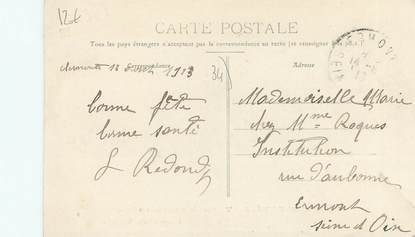 12€
CARTE POSTALE
Tous les pays étrangers n'acceptent pas la correspondance au recto (se renseigner à la poste)
Correspondance
1913
34
Adresse
bonne fête
bonne santé
Redond
Mademoiselle Marie
chez Mme Roques
Institution
rue d'aubonne
Ermont
seine et Oise